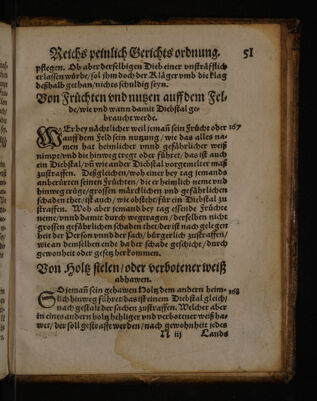 Reichs peinlich Gerichts ordnung. 51
pflegen. Ob aber derselbigen Dieb einer vnsträfflich
erlassen würde, sol ihm doch der Kläger vmb die klag
deßhalb gethan/ nichts schuldig seyn.
Von Früchten vnd nutzen auff dem Fel-
de/ wie vnd wann damit Diebstal ge-
braucht werde.
WEr bey nächtlicher weil jemañ sein Frücht oder 167
auff dem Feld sein nutzung/ wie das alles na-
men hat heimlicher vnnd gefährlicher weiß
nimpt/ vnd die hinweg tregt oder führet/ das ist auch
ein Diebstal/ vñ wie ander Diebstal vorgemelter maß
zustraffen. Deßgleichen/ wo einer bey tag jemands
anberürten seinen Früchten/ die er heimlich neme vnd
hinweg trüge/ grossen märcklichen vnd gefährlichen
schaden thet/ ist auch/ wie obsteht/ für ein Diebstal zu
straffen. Woh aber jemand bey tag essende Früchte
neme/ vnnd damit durch wegtragen/ derselben nicht
grossen gefährlichen schaden thet/ der ist nach gelegen
heit der Person vnnd der sach/ bürgerlich zustraffen/
wie an demselben ende da der schade geschicht/ durch
gewonheit oder gesetz herkommen.
Von Holtz stelen/ oder verbotener weiß
abhawen.
SO jemañ sein gehawen Holtz dem andern heim- 168
lich hinweg führet/ das ist einem Diebstal gleich/
nach gestalt der sachen zustraffen. Welcher aber
in eines andern holtz heliger vnd verbotener weiß ha
wet/ der soll gestrafft werden/ nach gewonheit jedes
N iij Lands